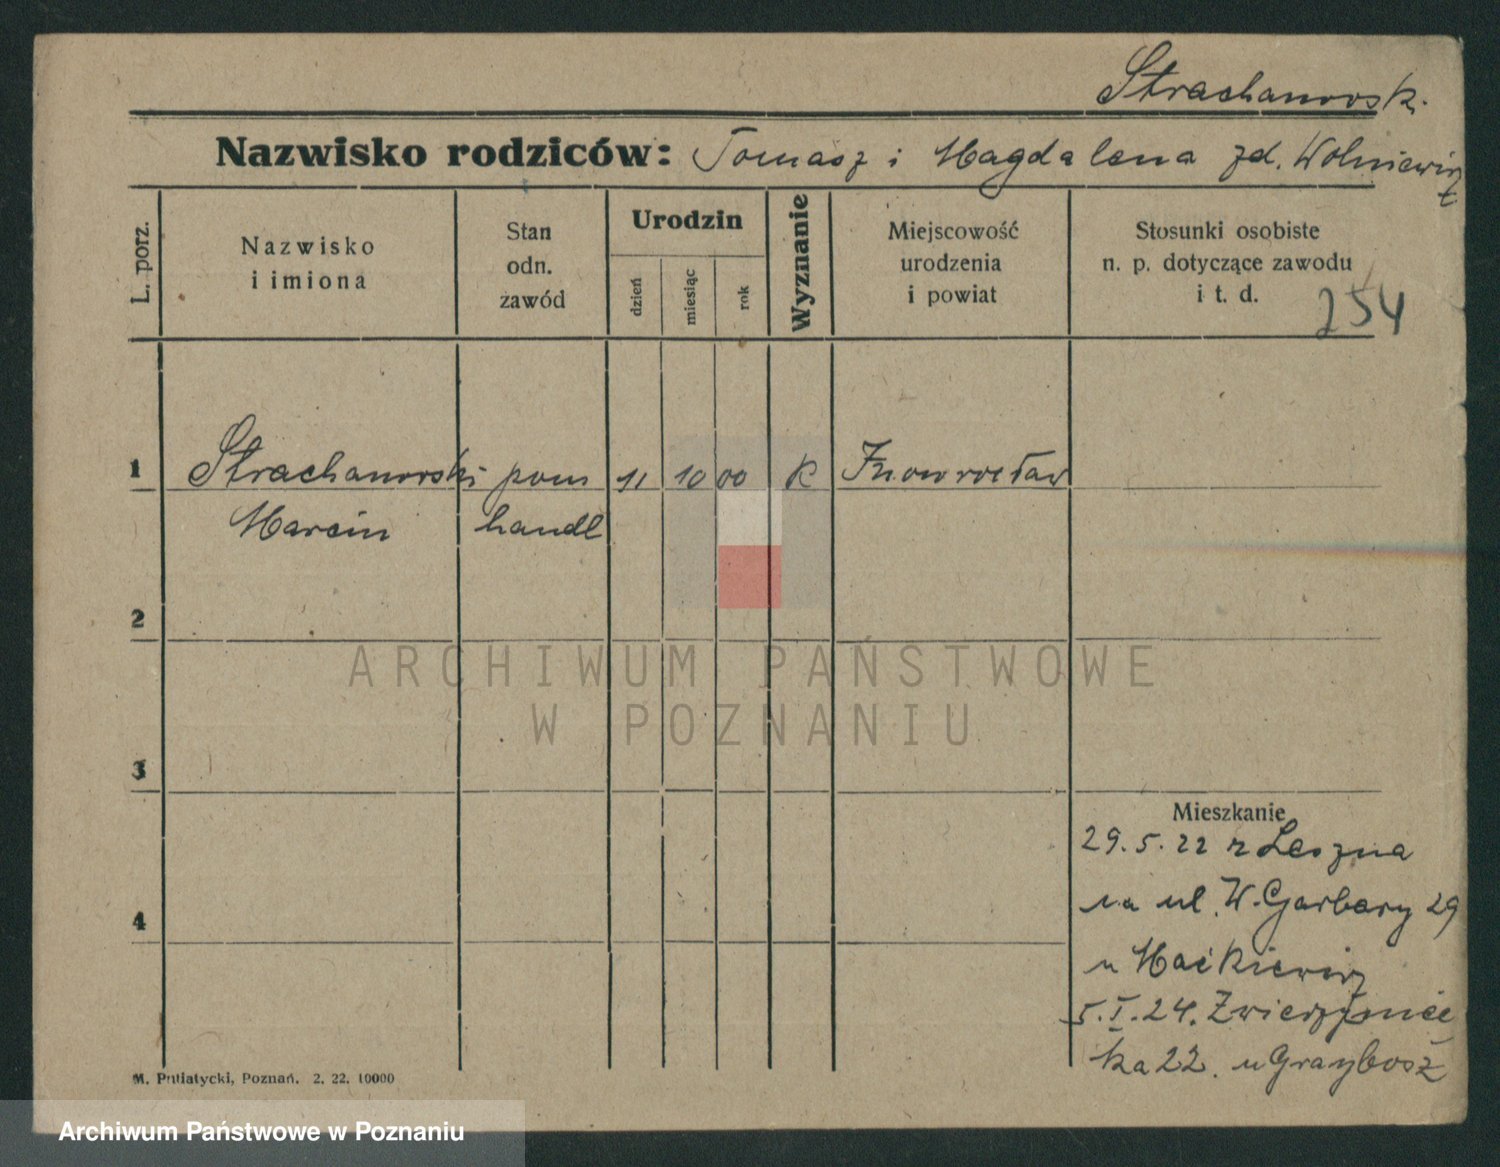 Strachanowsk.
Nazwisko rodziców: Tomasz i Magdalena zd. Wolniewicz
L. porz.
Nazwisko i imiona
Stan odn. zawód
Urodzin
dzień
miesiąc
rok
Wyznanie
Miejscowość urodzenia i powiat
Stosunki osobiste n. p. dotyczące zawodu i t. d.
254
1 Strachanowski pom 11 10 00 K Inowrocław
Marcin handl
2
3
4
Mieszkanie
29.5.22 z Leszna
na ul. W. Garbary 29
u Maćkiewicz
5.I.24. Zwierzyniec
ka 22. u
M. Putiatycki, Poznań. 2. 22. 10000
ARCHIWUM PAŃSTWOWE
W POZNANIU
Archiwum Państwowe w Poznaniu